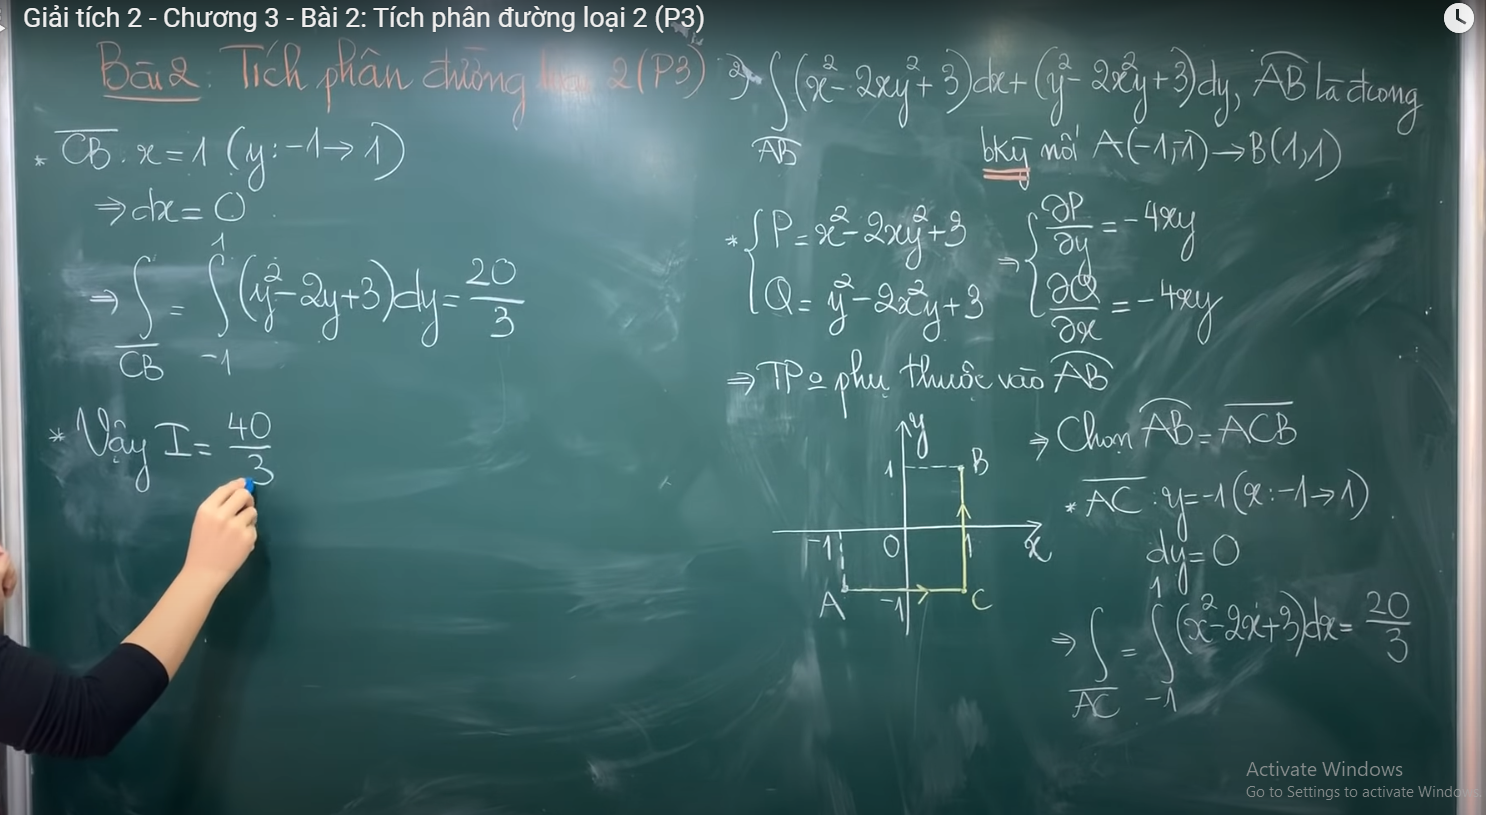 Giải tích 2 - Chương 3 - Bài 2: Tích phân đường loại 2 (P3)
Bài 2: Tích phân đường loại 2 (P3)
* CB: x = 1 (y: -1 → 1)
⇒ dx = 0
⇒ ∫_CB = ∫_{-1}^{1} (y² - 2y + 3)dy = 20/3
* Vậy I = 40/3
2) ∫_AB (x² - 2xy² + 3)dx + (y² - 2x²y + 3)dy, AB là đường
bkỳ nối A(-1,-1) → B(1,1)
* { P = x² - 2xy² + 3 ⇒ { ∂P/∂y = -4xy
Q = y² - 2x²y + 3 ∂Q/∂x = -4xy
⇒ TP o phụ thuộc vào AB
⇒ Chọn AB = ACB
* AC: y = -1 (x: -1 → 1)
dy = 0
⇒ ∫_AC = ∫_{-1}^{1} (x² - 2x + 3)dx = 20/3
y
1 B
-1 0 1 x
A -1 C
Activate Windows
Go to Settings to activate Windows.